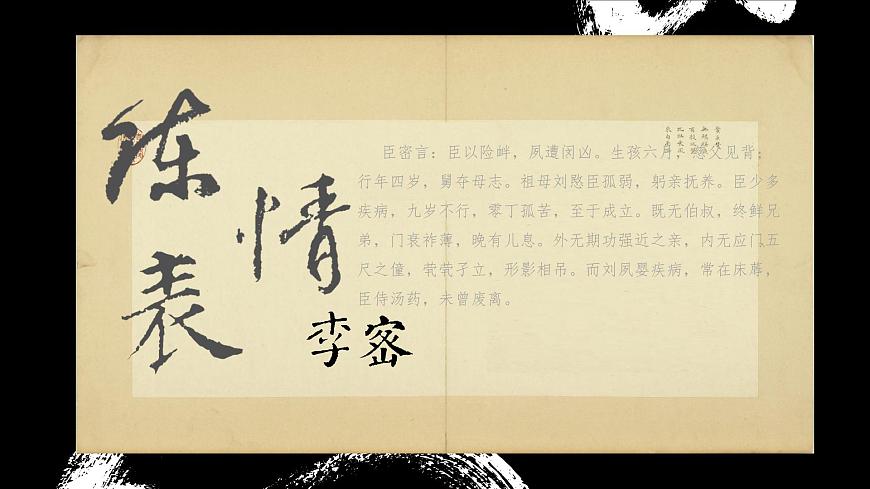 陈情表
李密
臣密言：臣以险衅，夙遭闵凶。生孩六月，慈父见背；
行年四岁，舅夺母志。祖母刘愍臣孤弱，躬亲抚养。臣少多
疾病，九岁不行，零丁孤苦，至于成立。既无伯叔，终鲜兄
弟，门衰祚薄，晚有儿息。外无期功强近之亲，内无应门五
尺之僮，茕茕孑立，形影相吊。而刘夙婴疾病，常在床蓐，
臣侍汤药，未曾废离。